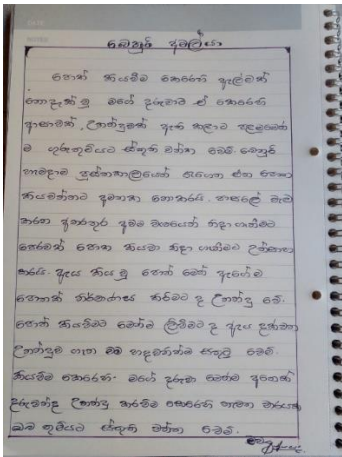 සෙනුරි අමල්යා
පොත් කියවීම කෙරෙහි ඇල්මක්
නොදැක්වූ මගේ දරුවාට ඒ කෙරෙහි
ආශාවක්, උනන්දුවක් ඇති කලාට පළමුවෙන්ම
ම ගුරුතුමියට ස්තූති වන්ත වෙමි. සෙනුරි
හැමදාම පුස්තකාලයෙන් ගෙන එන පොත
කියවන්නට අමතක නොකරයි. පාසලේ වැඩ
කරන අතරතුර අම්මා එක්ක නිදා ගැනීමට
පෙරවත් පොත කියවා නිදා ගැනීමට උත්සාහ
කරයි. ඇය කිය වූ පොත් මෙන් ඇගේම
පොතක් නිර්මාණය කිරීමට ද උනන්දු වේ.
පොත් කියවීමට මෙන්ම ලිවීමට ද ඇය දක්වන
උනන්දුව ගැන මම හදවතින්ම සතුටු වෙමි.
කියවීම කෙරෙහි මගේ දරුවා මෙන්ම අනෙක්
දරුවන්ද උනන්දු කරවීම කෙරෙහි නැවත වරක්
ඔබ තුමියට ස්තූති වන්ත වෙමි.